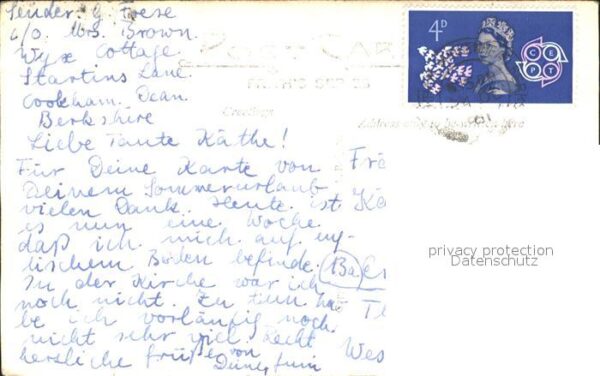 Sender: G. Frese
c/o. Mrs. Brown.
Wyx Cottage
Startins Lane.
Cookham. Dean.
Berkshire
Liebe Tante Käthe!
Für Deine Karte von
Deinem Sommerurlaub
vielen Dank. Heute ist
es nun eine Woche
daß ich mich auf eng-
lischem Boden befinde.
In der Kirche war ich
noch nicht. Zu tun ha-
be ich vorläufig noch
nicht sehr viel. Recht
herzliche Grüße von
4D
CEPT
POST CARD
Greetings
Address only to be written here
Frä
Kä
(Ba)
Th
Wes
privacy protection
Datenschutz